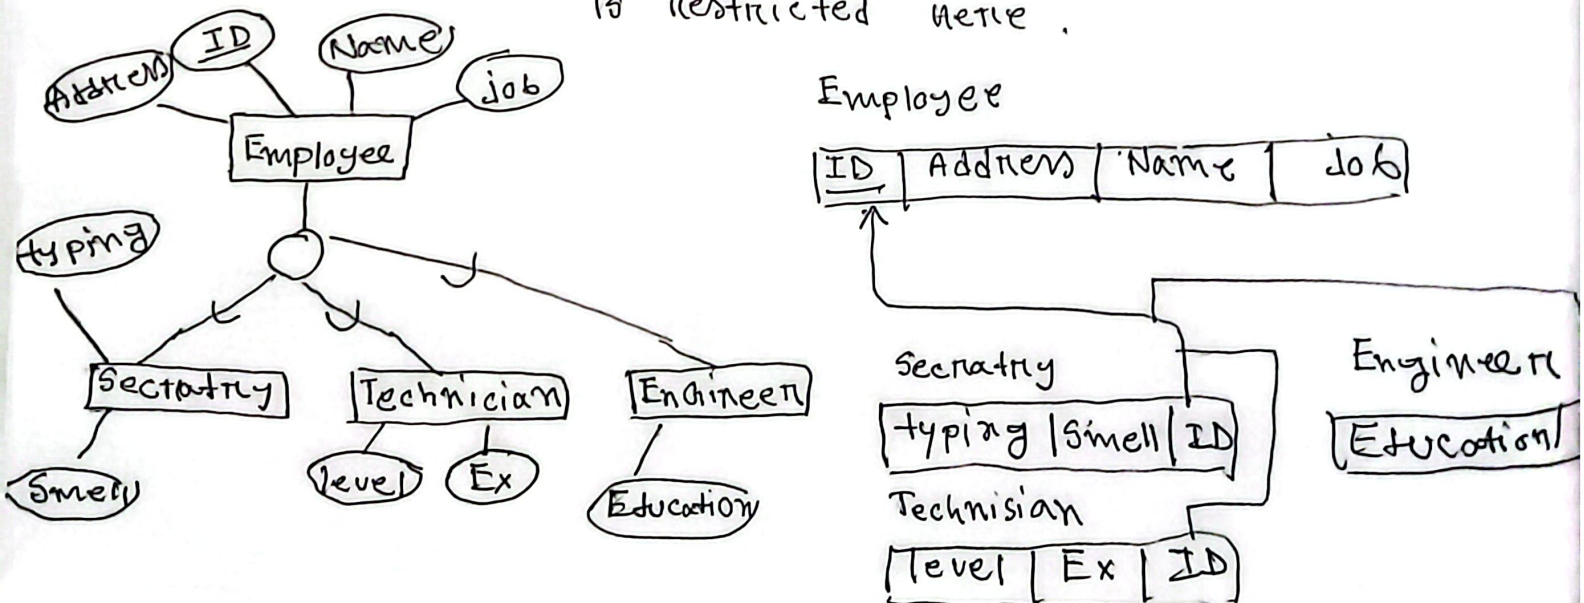 is restricted here.
Address
ID
Name
job
Employee
typing
Secratry
Technician
Engineer
Smell
level
Ex
Education
Employee
ID Address Name Job
Secratry
typing Smell ID
Technisian
level Ex ID
Engineer
Education